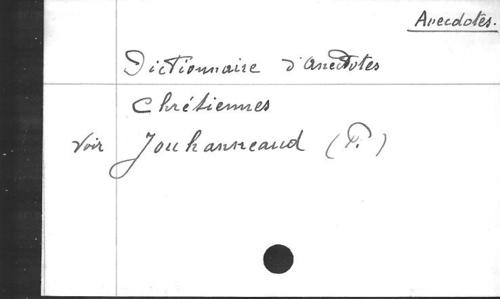 Anecdotes.
Dictionnaire d'Anecdotes
Chrétiennes
voir Jouhanneaud (P.)